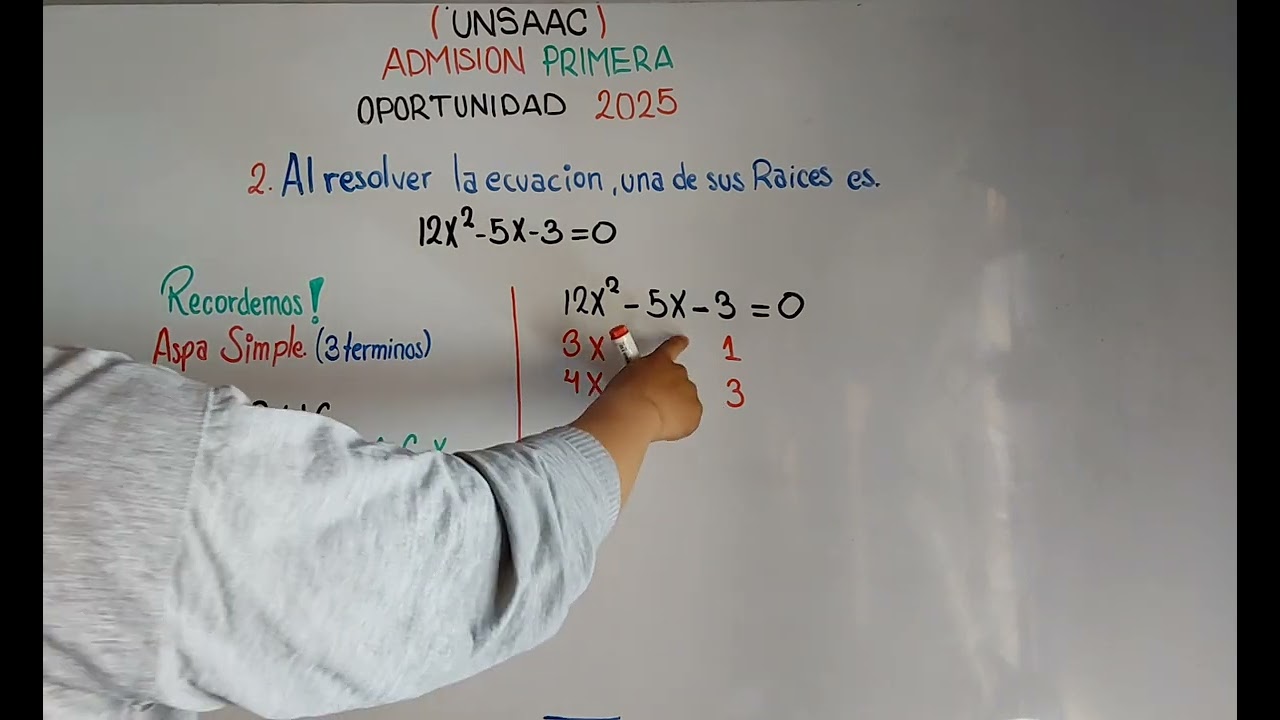 (UNSAAC)
ADMISION PRIMERA
OPORTUNIDAD 2025
2. Al resolver la ecuacion, una de sus Raices es.
12x²-5x-3=0
Recordemos!
Aspa Simple. (3 terminos)
12x² - 5x - 3 = 0
3x 1
4x 3